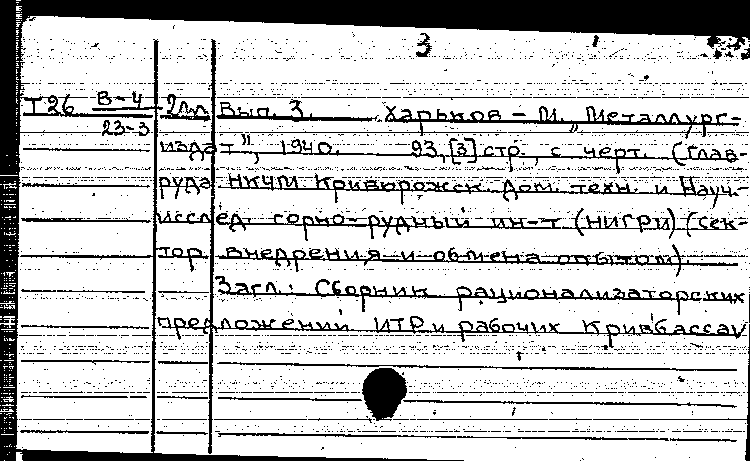 3
Т26 В-4 2лл Вып. 3. Харьков – М. „Металлург-
23-3
издат", 1940. 93,[3] стр., с черт. (Глав-
руда НКЧМ Криворожск. Дом техн. и Науч.-
исслед. горно-рудный ин-т (НИГРИ) (Сек-
тор внедрения и обмена опытом).
Загл.: Сборник рационализаторских
предложений ИТР и рабочих Кривбасса